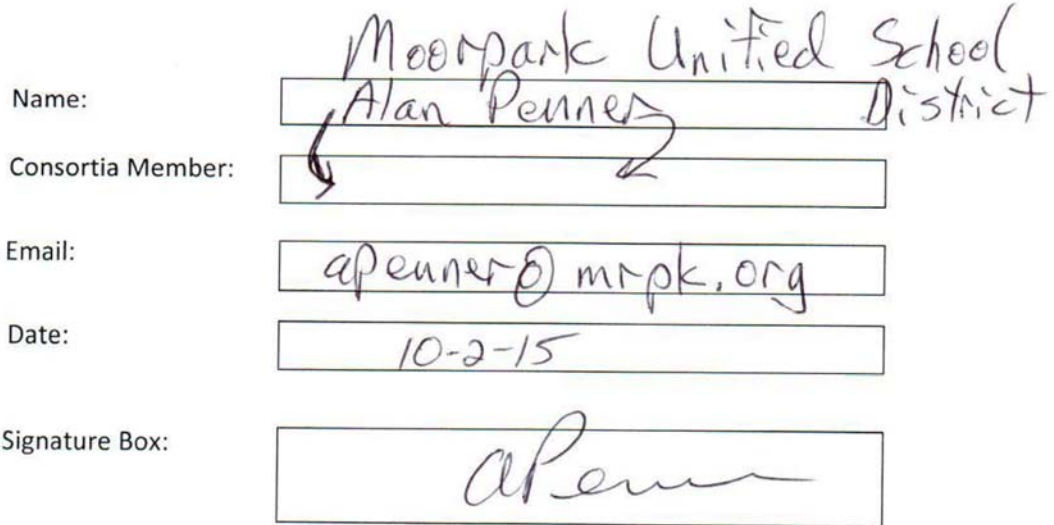 Moorpark Unified School
Name: Alan Penner District
Consortia Member:
Email: apenner@mrpk.org
Date: 10-2-15
Signature Box: aPenn